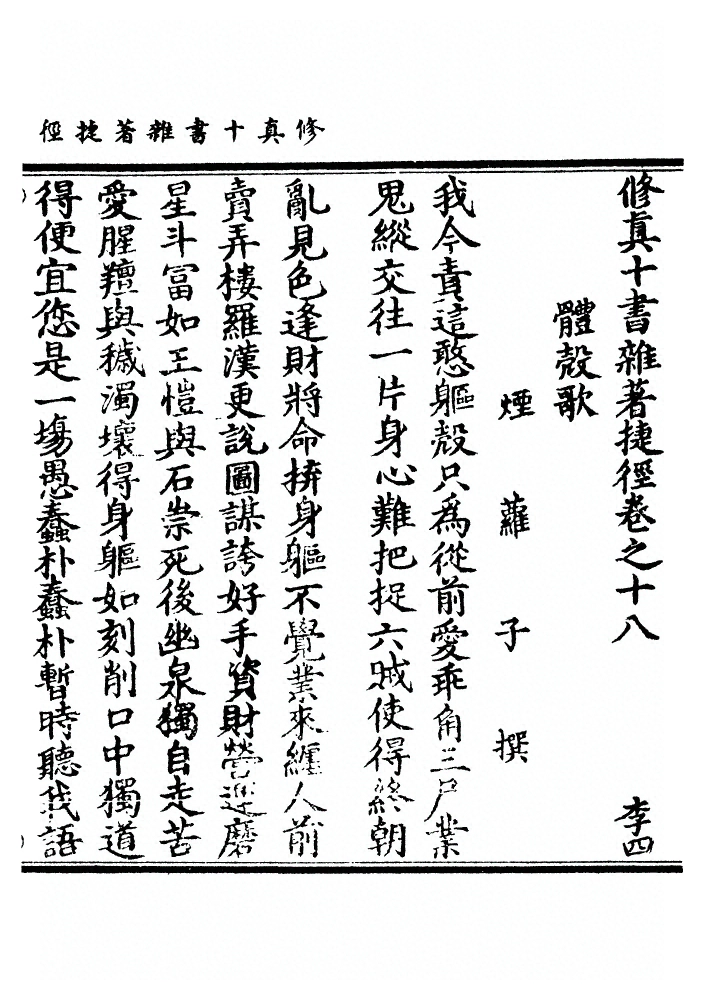 修真十書雜著捷徑
修真十書雜著捷徑卷之十八 李四
體殼歌
煙蘿子撰
我今責這憨軀殼只為從前愛乖角三尸業
鬼縱交往一片身心難把捉六賊使得終朝
亂見色逢財將命拚身軀不覺業來纏人前
賣弄樓羅漢更說圖謀誇好手貨財營運磨
星斗富如王愷與石崇死後幽泉獨自走苦
愛腥羶與穢濁壞得身軀如刻削口中獨道
得便宜您是一場愚蠢朴蠢朴暫時聽我語